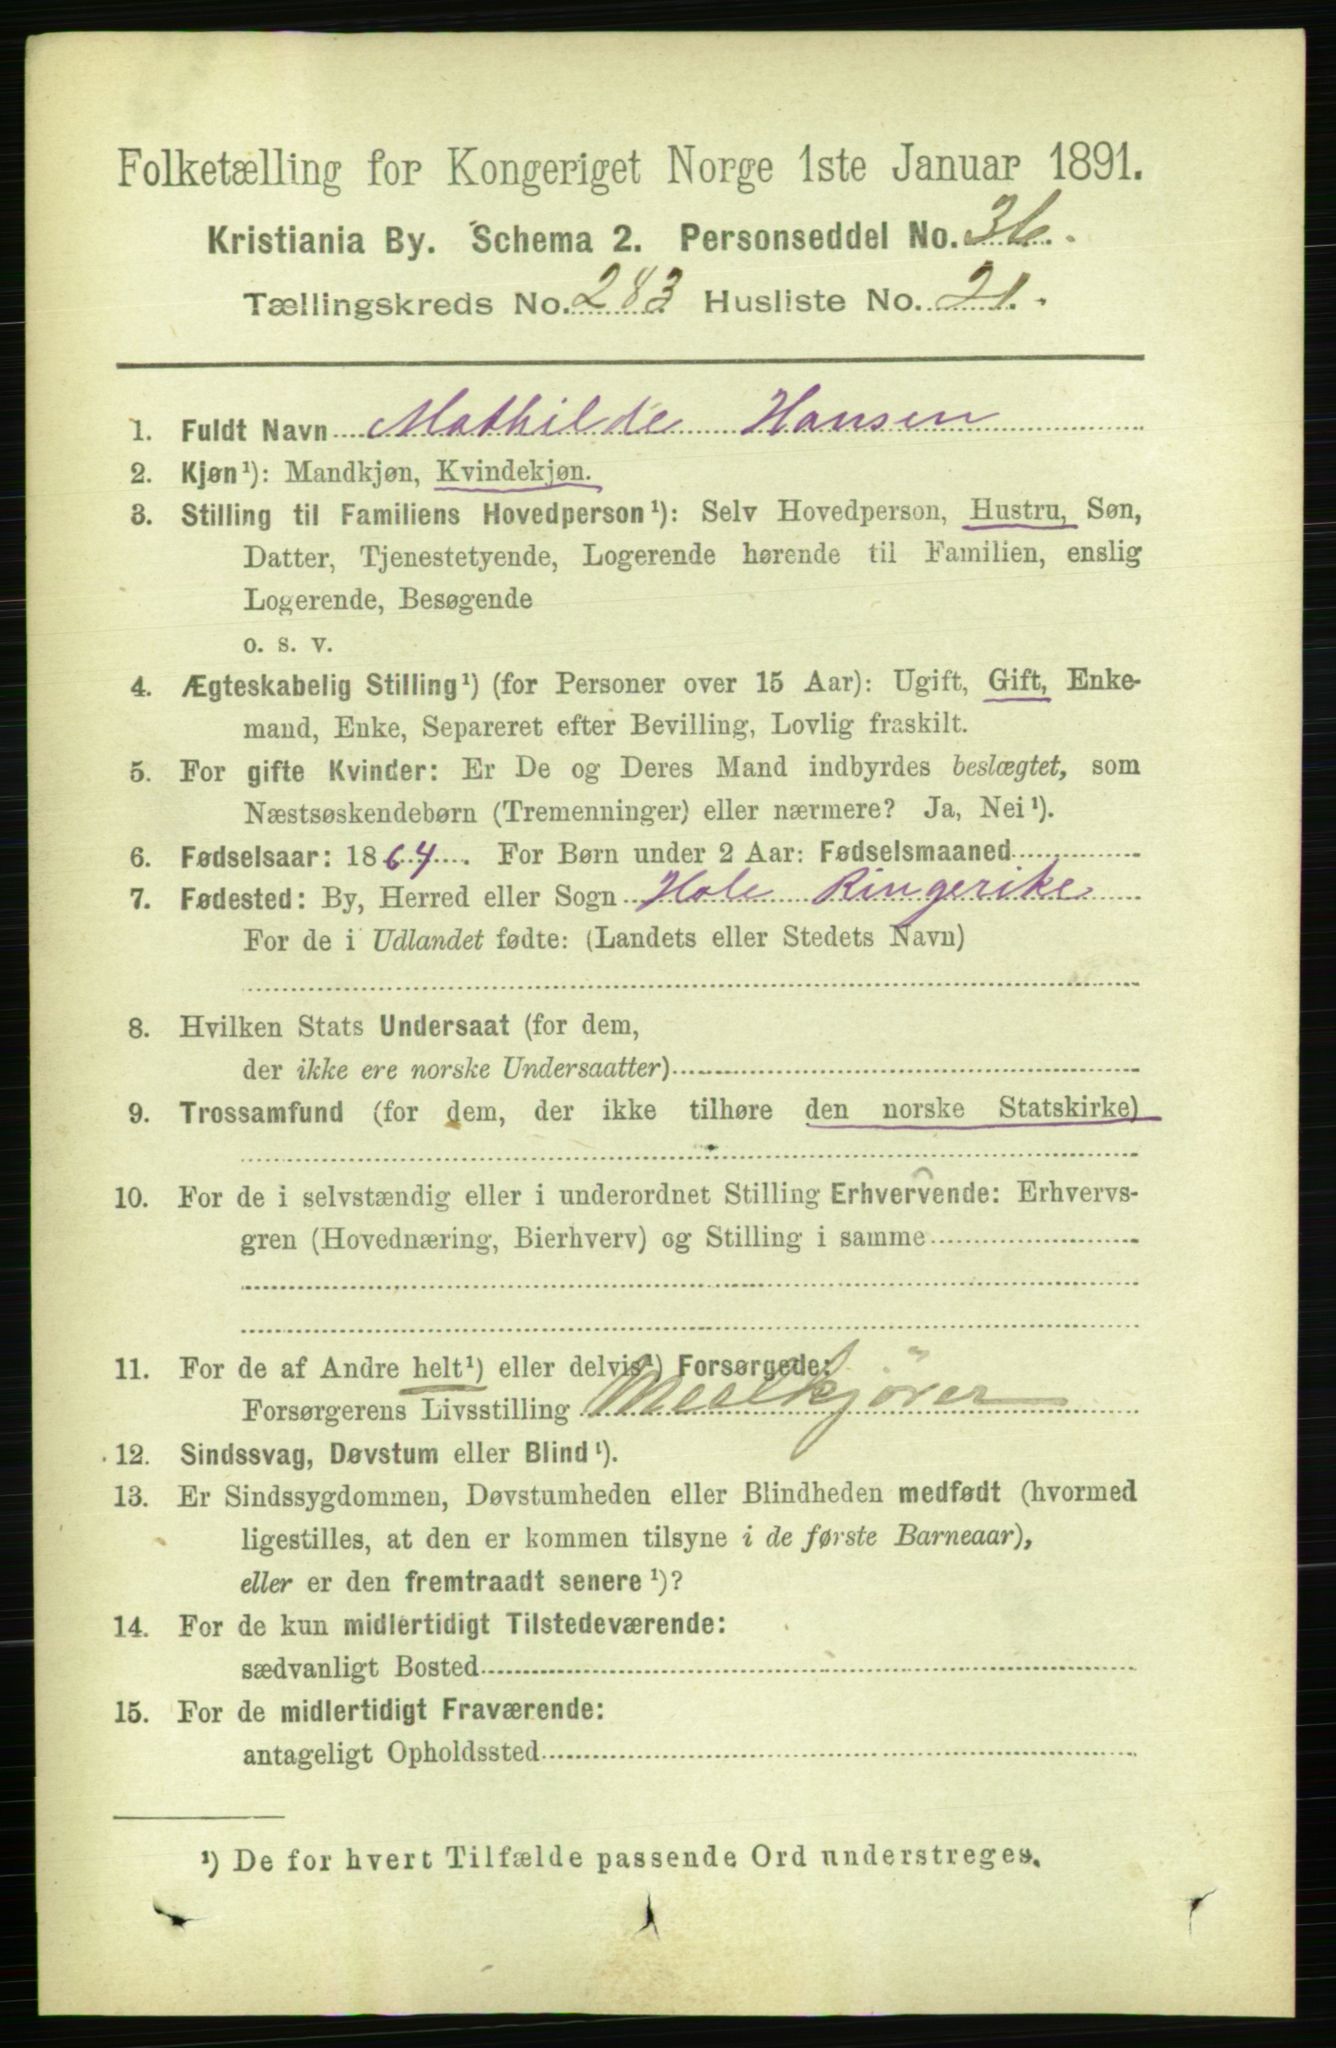 Folketælling for Kongeriget Norge 1ste Januar 1891.
Kristiania By. Schema 2. Personseddel No. 36.
Tællingskreds No. 283 Husliste No. 21.
1. Fuldt Navn Mathilde Hansen
2. Kjøn¹): Mandkjøn, Kvindekjøn.
3. Stilling til Familiens Hovedperson¹): Selv Hovedperson, Hustru, Søn,
Datter, Tjenestetyende, Logerende hørende til Familien, enslig
Logerende, Besøgende
o. s. v.
4. Ægteskabelig Stilling¹) (for Personer over 15 Aar): Ugift, Gift, Enke-
mand, Enke, Separeret efter Bevilling, Lovlig fraskilt.
5. For gifte Kvinder: Er De og Deres Mand indbyrdes beslægtet, som
Næstsøskendebørn (Tremenninger) eller nærmere? Ja, Nei¹).
6. Fødselsaar: 1864. For Børn under 2 Aar: Fødselsmaaned
7. Fødested: By, Herred eller Sogn Hole Ringerike
For de i Udlandet fødte: (Landets eller Stedets Navn)
8. Hvilken Stats Undersaat (for dem,
der ikke ere norske Undersaatter)
9. Trossamfund (for dem, der ikke tilhøre den norske Statskirke)
10. For de i selvstændig eller i underordnet Stilling Erhvervende: Erhvervs-
gren (Hovednæring, Bierhverv) og Stilling i samme
11. For de af Andre helt¹) eller delvis¹) Forsørgede:
Forsørgerens Livsstilling Melkkjører
12. Sindssvag, Døvstum eller Blind¹).
13. Er Sindssygdommen, Døvstumheden eller Blindheden medfødt (hvormed
ligestilles, at den er kommen tilsyne i de første Barneaar),
eller er den fremtraadt senere¹)?
14. For de kun midlertidigt Tilstedeværende:
sædvanligt Bosted
15. For de midlertidigt Fraværende:
antageligt Opholdssted
¹) De for hvert Tilfælde passende Ord understreges.